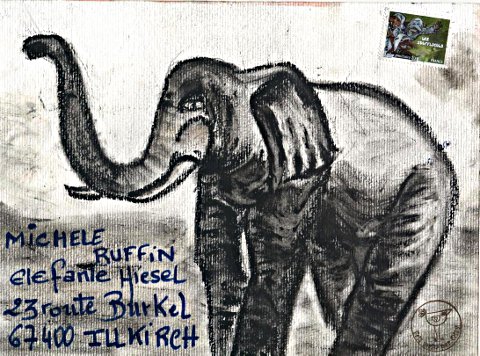 MICHELE
RUFFIN
elefante Hiesel
23 route Burkel
67400 ILLKIRCH